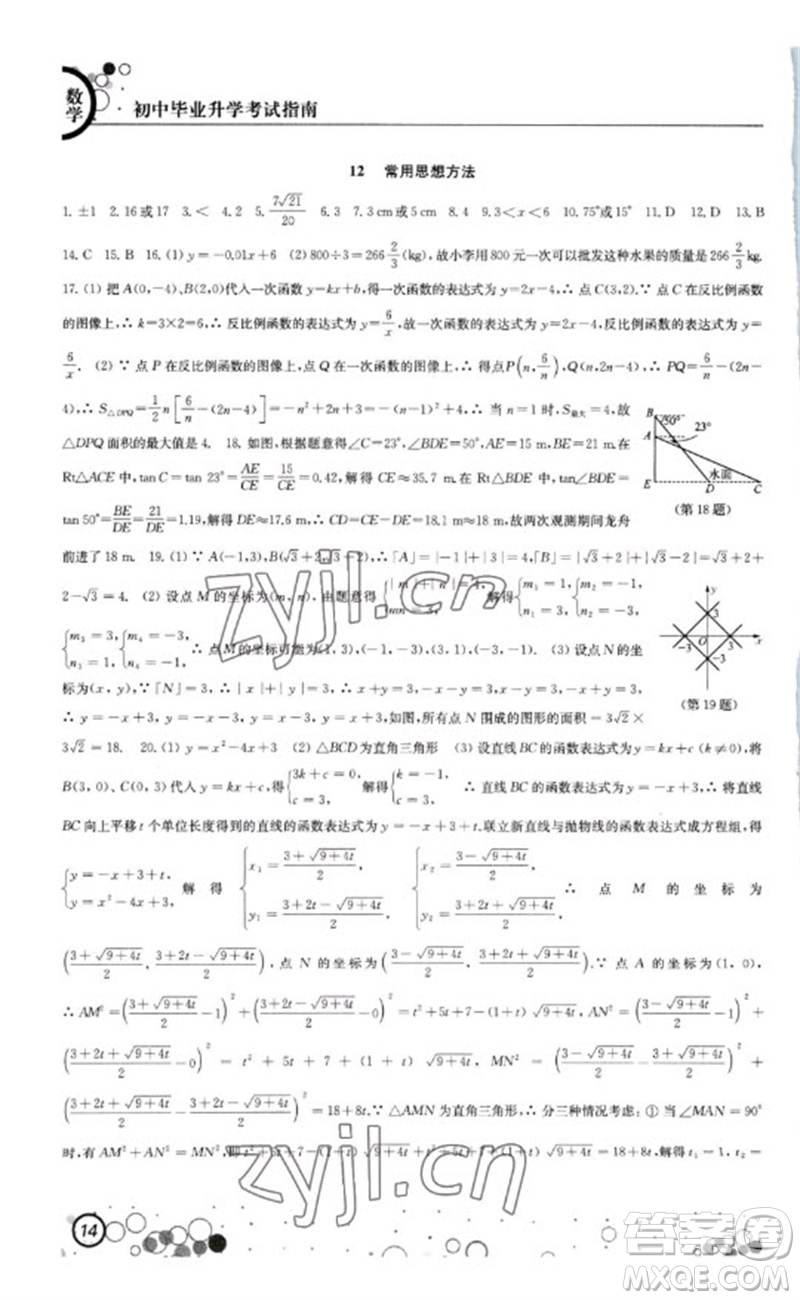 数学
初中毕业升学考试指南
12 常用思想方法
1. ±1 2. 16 或 17 3. < 4. 2 5. 7√21/20 6. 3 7. 3 cm 或 5 cm 8. 4 9. 3<x<6 10. 75°或 15° 11. D 12. D 13. B
14. C 15. B 16. (1) y=-0.01x+6 (2) 800÷3=266 2/3 (kg), 故小李用 800 元一次可以批发这种水果的质量是 266 2/3 kg.
17. (1) 把 A(0,-4)、B(2,0)代入一次函数 y=kx+b,得一次函数的表达式为 y=2x-4,∴ 点 C(3,2).∵ 点 C 在反比例函数
的图像上,∴ k=3×2=6,∴ 反比例函数的表达式为 y=6/x. (2) ∵ 点 P 在反比例函数的图像上,点 Q 在一次函数的图像上,∴ 得点P(n,6/n),Q(n,2n-4),∴ PQ=6/n-(2n-
4),∴ S△DPQ=1/2 n[6/n-(2n-4)]=-n²+2n+3=-(n-1)²+4,∴ 当 n=1 时,S最大=4,故
△DPQ 面积的最大值是 4. 18. 如图,根据题意,得∠C=23°,∠BDE=50°,AE=15 m,BE=21 m. 在
Rt△ACE 中,tan C=tan 23°=AE/CE=15/CE=0.42,解得 CE≈35.7 m. 在 Rt△BDE 中,tan∠BDE=
tan 50°=BE/DE=21/DE=1.19,解得 DE≈17.6 m,∴ CD=CE-DE=18.1 m≈18 m. 故两次观测期间龙舟
前进了 18 m. 19. (1) ∵ A(-1,3)、B(√3+2,√3-2),∴「A」=|-1|+|3|=4,「B」=|√3+2|+|√3-2|=√3+2+
2-√3=4. (2) 设点 M 的坐标为(m,n),由题意得 {|m|+|n|=4, mn=3, 解得 {m₁=1, n₁=3, {m₂=-1, n₂=-3,
{m₃=3, n₃=1, {m₄=-3, n₄=-1, ∴ 点 M 的坐标可能为(1,3),(-1,-3),(3,1),(-3,-1). (3) 设点 N 的坐
标为(x,y),∵「N」=3,∴ |x|+|y|=3,∴ x+y=3 或 x-y=3 或-x-y=3 或-x+y=3,
∴ y=-x+3,y=-x-3,y=x-3,y=x+3,如图,所有点 N 围成的图形的面积=3√2×
3√2=18. 20. (1) y=x²-4x+3 (2) △BCD 为直角三角形 (3) 设直线 BC 的函数表达式为 y=kx+c (k≠0),将
B(3,0)、C(0,3)代入 y=kx+c,得 {3k+c=0, c=3, 解得 {k=-1, c=3, ∴ 直线 BC 的函数表达式为 y=-x+3,∴ 将直线
BC 向上平移 t 个单位长度得到的直线的函数表达式为 y=-x+3+t.联立新直线与抛物线的函数表达式成方程组,得
{y=-x+3+t, y=x²-4x+3, 解得 {x₁=(3+√(9+4t))/2, y₁=(3+2t-√(9+4t))/2, {x₂=(3-√(9+4t))/2, y₂=(3+2t+√(9+4t))/2, ∴ 点 M 的坐标为
((3+√(9+4t))/2, (3+2t-√(9+4t))/2), 点 N 的坐标为((3-√(9+4t))/2, (3+2t+√(9+4t))/2).∵ 点 A 的坐标为(1,0),
∴ AM²=((3+√(9+4t))/2-1)²+((3+2t-√(9+4t))/2-0)²=t²+5t+7-(1+t)√(9+4t),AN²=((3-√(9+4t))/2-1)²+
((3+2t+√(9+4t))/2-0)²=t²+5t+7+(1+t)√(9+4t),MN²=((3-√(9+4t))/2-(3+√(9+4t))/2)²+
((3+2t+√(9+4t))/2-(3+2t-√(9+4t))/2)²=18+8t.∵ △AMN 为直角三角形,∴ 分三种情况考虑:① 当∠MAN=90°
时,有 AM²+AN²=MN²,即 t²+5t+7-(1+t)√(9+4t)+t²+5t+7+(1+t)√(9+4t)=18+8t,解得 t₁=1,t₂=
B 50° 23° A 水面 E D C
(第 18 题)
y 3 -3 O 3 x -3
(第 19 题)
14
zyjl.cn
zyjl.cn
答案圈
MXQE.COM